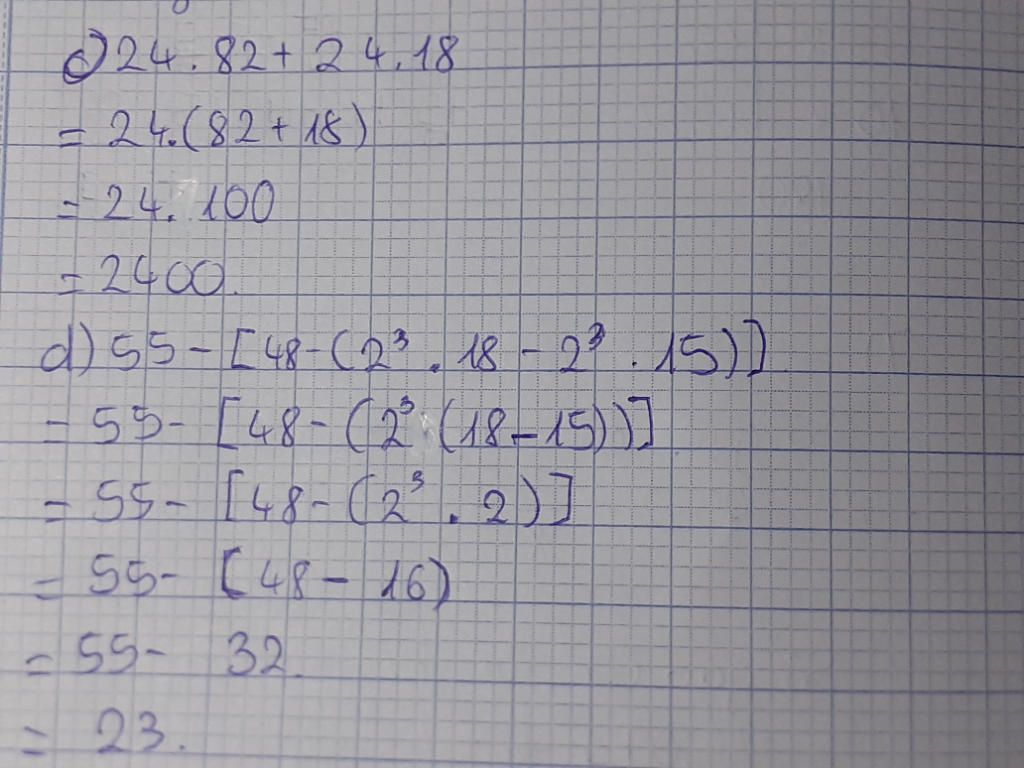 c) 24.82 + 24.18
= 24.(82 + 18)
= 24.100
= 2400.
d) 55 - [48 - (2³ . 18 - 2³ . 15)]
= 55 - [48 - (2³ (18 - 15))]
= 55 - [48 - (2³ . 2)]
= 55 - [48 - 16)
= 55 - 32.
= 23.